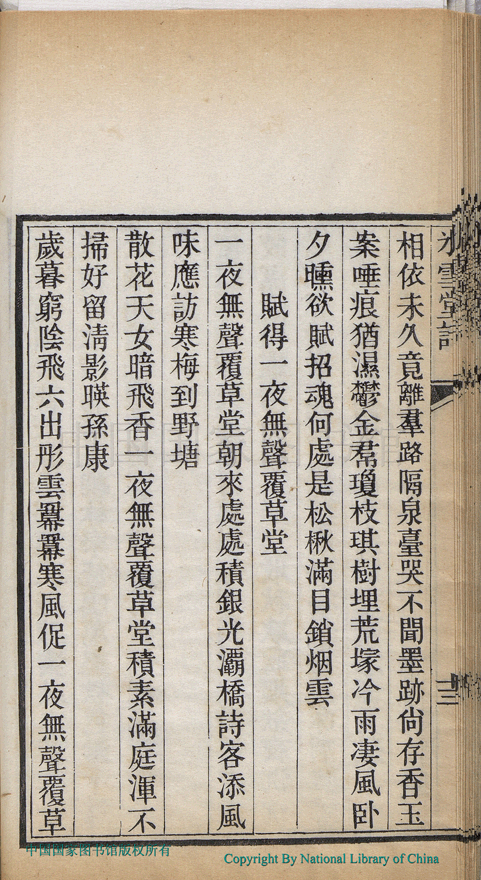 相依未久竟離羣路隔泉臺哭不聞墨跡尙存香玉
案唾痕猶濕鬱金帬瓊枝琪樹埋荒塚冷雨凄風臥
夕曛欲賦招魂何處是松楸滿目鎖烟雲
賦得一夜無聲覆草堂
一夜無聲覆草堂朝來處處積銀光灞橋詩客添風
味應訪寒梅到野塘
散花天女暗飛香一夜無聲覆草堂積素滿庭渾不
掃好留淸影暎孫康
歲暮窮陰飛六出彤雲羃羃寒風促一夜無聲覆草
中国国家图书馆版权所有
Copyright By National Library of China